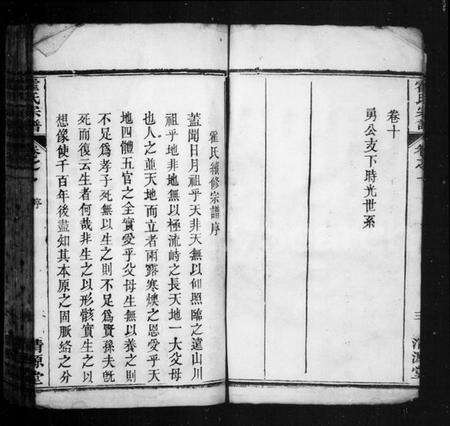 霍氏宗譜
卷之一
三
清源堂
卷十
勇公支下時光世系
霍氏續修宗譜序
蓋聞日月祖乎天非天無以仰照臨之遠山川
祖乎地非地無以極流峙之長天地一大父母
也人之並天地而立者雨露寒燠之恩愛乎天
地四體五官之全實愛乎父母生無以養之則
不足為孝子死無以生之則不足為賢孫夫旣
死而復云生者何哉非生之以形骸實生之以
想像使千百年後盡知其本原之固脈絡之分
霍氏宗譜
卷之一
序
清源堂